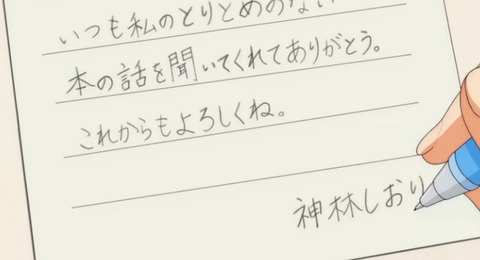 いつも私のとりとめのない
本の話を聞いてくれてありがとう。
これからもよろしくね。
神林しおり